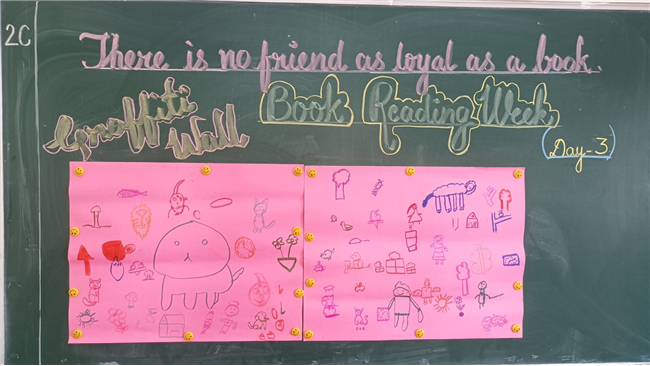 2C
There is no friend as loyal as a book.
Graffiti Wall
Book Reading Week
(Day-3)